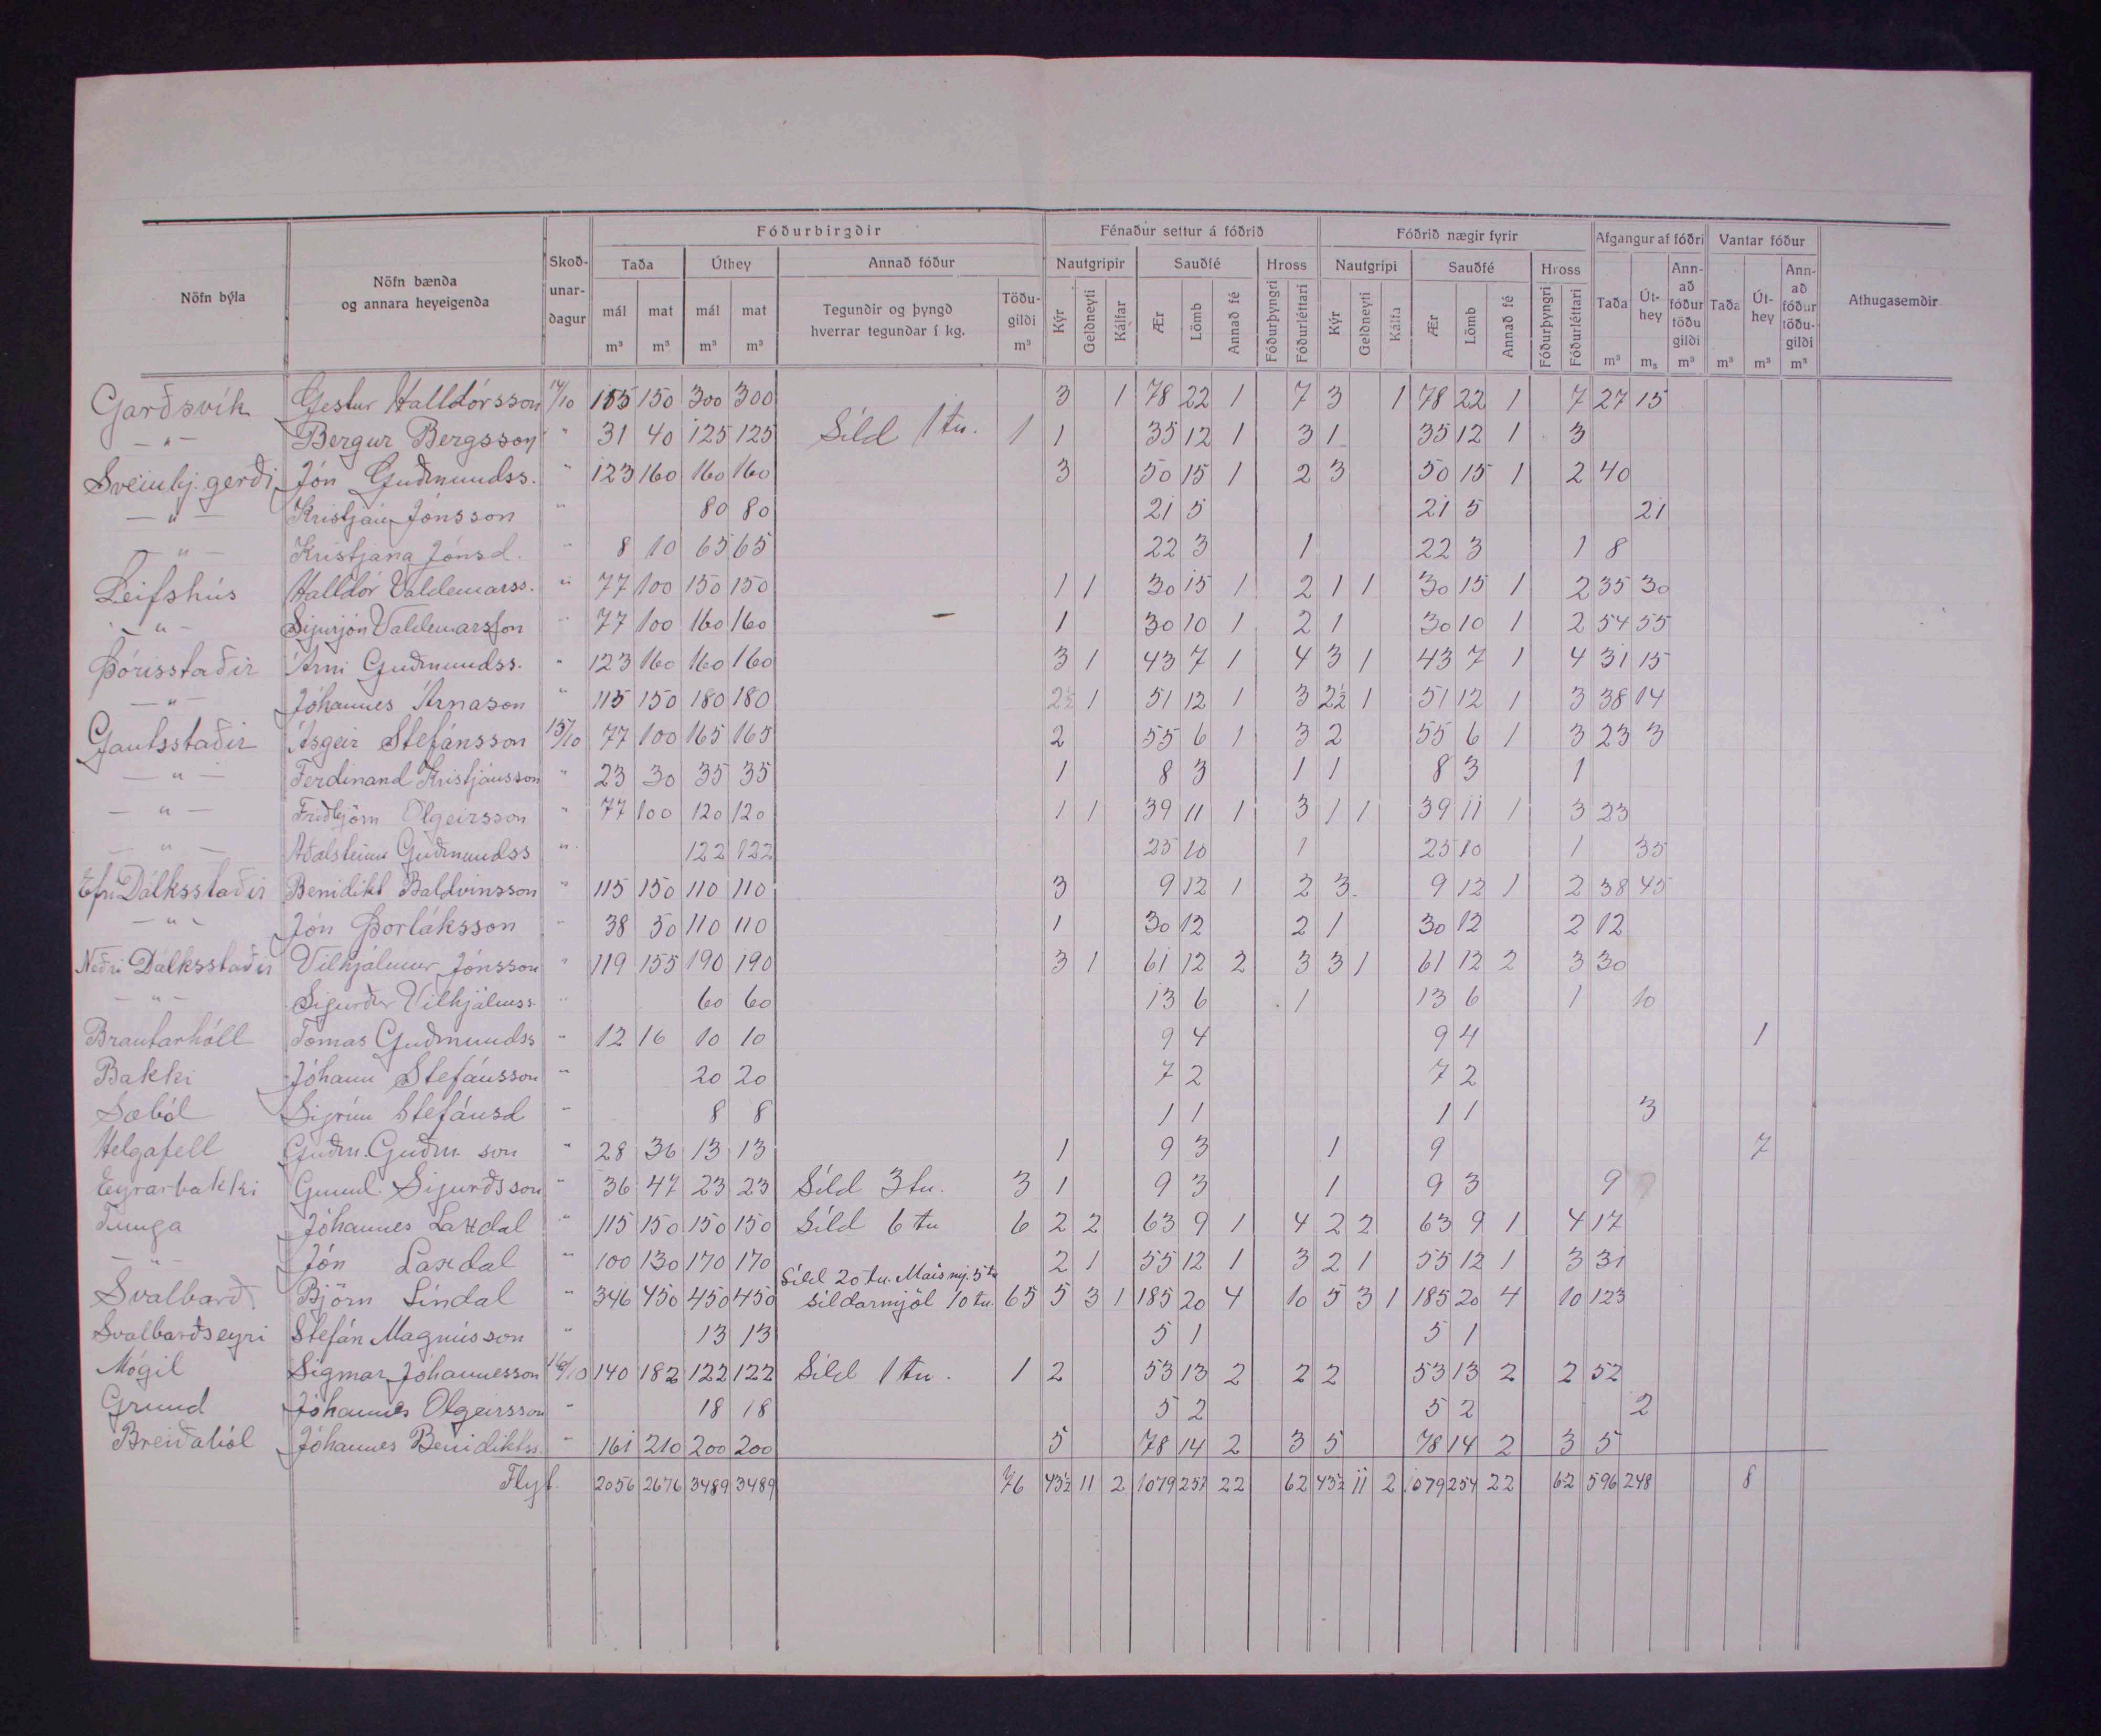 Fóðurbirgðir Fénaður settur á fóðrið Fóðrið nægir fyrir Afgangur af fóðri Vantar fóður
Nöfn býla Nöfn bænda og annara heyeigenda Skoð-unar-dagur Taða Úthey Annað fóður Nautgripir Sauðfé Hross Nautgripi Sauðfé Hross Taða Út-hey Ann-að fóður töðu gildi Taða Út-hey Ann-að fóður töðu-gildi Athugasemdir
mál mat mál mat Tegundir og þyngd hverrar tegundar í kg. Töðu-gildi Kýr Geldneyti Kálfar Ær Lömb Annað fé Fóðurþyngri Fóðurléttari Kýr Geldneyti Kálfa Ær Lömb Annað fé Fóðurþyngri Fóðurléttari
m³ m³ m³ m³ m³ m³ m₃ m³ m³ m³ m³
Garðsvík Gestur Halldórsson 14/10 115 150 300 300 3 1 78 22 1 7 3 1 78 22 1 7 27 15
— " — Bergur Bergsson " 31 40 125 125 Síld 1 tu. 1 1 35 12 1 3 1 35 12 1 3
Sveinbj.gerði Jón Guðmundss. " 123 160 160 160 3 50 15 1 2 3 50 15 1 2 40
— " — Kristján Jónsson " 80 80 21 5 21 5 21
— " — Kristjana Jónsd. " 8 10 65 65 22 3 1 22 3 1 8
Leifshús Halldór Valdemarss. " 77 100 150 150 1 1 30 15 1 2 1 1 30 15 1 2 35 30
— " — Sigurjón Valdemarsson " 77 100 160 160 1 30 10 1 2 1 30 10 1 2 54 55
Þórisstaðir Árni Guðmundss. " 123 160 160 160 3 1 43 7 1 4 3 1 43 7 1 4 31 15
— " — Jóhannes Árnason " 115 150 180 180 2½ 1 51 12 1 3 2½ 1 51 12 1 3 38 14
Gautsstaðir Ásgeir Stefánsson 15/10 77 100 165 165 2 55 6 1 3 2 55 6 1 3 23 3
— " — Ferdinand Kristjánsson " 23 30 35 35 1 8 3 1 1 8 3 1
— " — Friðbjörn Olgeirsson " 77 100 120 120 1 1 39 11 1 3 1 1 39 11 1 3 23
— " — Aðalsteinn Guðmundss " 122 122 25 10 1 25 10 1 35
Efri Dálksstaðir Benidikt Baldvinsson " 115 150 110 110 3 9 12 1 2 3 9 12 1 2 38 45
— " — Jón Þorláksson " 38 50 110 110 1 30 12 2 1 30 12 2 12
Neðri Dálksstaðir Vilhjálmur Jónsson " 119 155 190 190 3 1 61 12 2 3 3 1 61 12 2 3 30
— " — Sigurður Vilhjálmss. " 60 60 13 6 1 13 6 1 10
Brautarhóll Tómas Guðmundss " 12 16 10 10 9 4 9 4 1
Bakki Jóhann Stefánsson " 20 20 7 2 7 2
Sæból Sigrún Stefánsd " 8 8 1 1 1 1 3
Helgafell Guðm. Guðm. son " 28 36 13 13 1 9 3 1 9 7
Eyrarbakki Gunnl. Sigurðsson " 36 47 23 23 Síld 3 tu. 3 1 9 3 1 9 3 9
Tunga Jóhannes Laxdal " 115 150 150 150 Síld 6 tu 6 2 2 63 9 1 4 2 2 63 9 1 4 17
— " — Jón Laxdal " 100 130 170 170 2 1 55 12 1 3 2 1 55 12 1 3 31
Síld 20 tu. Maís mj. 5 tu
Svalbarð Björn Líndal " 346 450 450 450 síldarmjöl 10 tu. 65 5 3 1 185 20 4 10 5 3 1 185 20 4 10 123
Svalbarðseyri Stefán Magnússon " 13 13 5 1 5 1
Mógil Sigmar Jóhannesson 16/10 140 182 122 122 Síld 1 tu. 1 2 53 13 2 2 2 53 13 2 2 52
Grund Jóhannes Olgeirsson " 18 18 5 2 5 2 2
Breiðaból Jóhannes Benidiktss. " 161 210 200 200 5 78 14 2 3 5 78 14 2 3 5
Flyt. 2056 2676 3489 3489 76 43½ 11 2 1079 257 22 62 43½ 11 2 1079 254 22 62 596 248 8